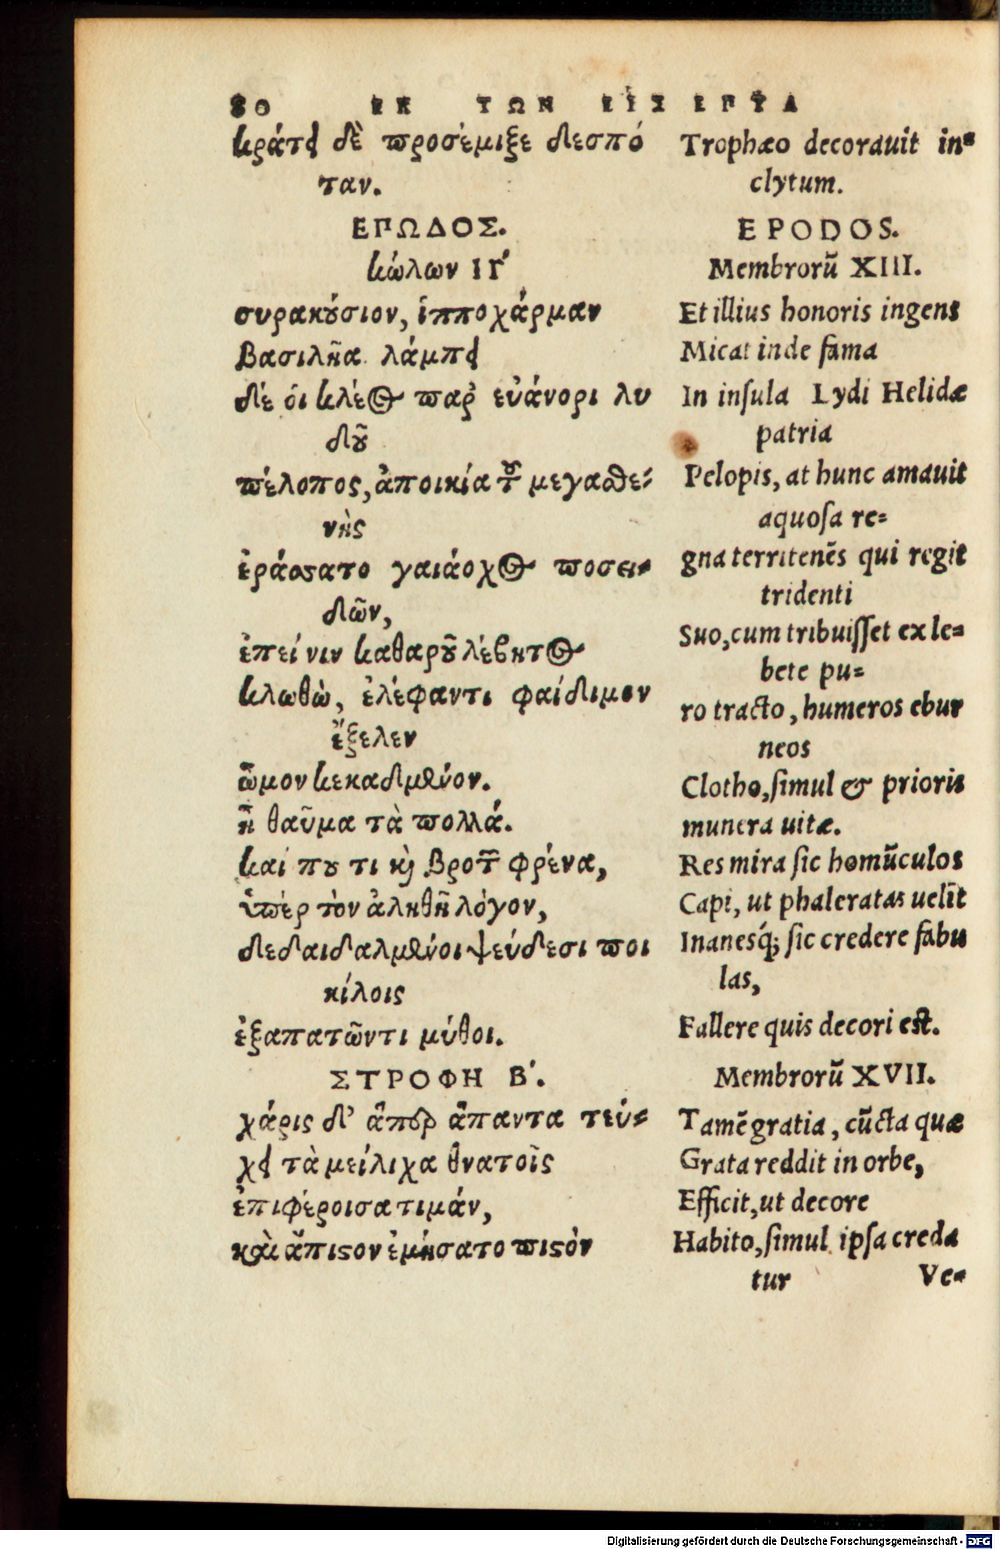 80 ΕΚ ΤΩΝ ΕἸΣ ΕΡΓΑ
κράτει δὲ προσέμιξε δεσπό
ταν.
ΕΠΩΔΟΣ.
κώλων ΙΓ΄
συρακȣσιον, ἱπποχάρμαν
βασιλῆα λάμπει
δέ ὁι κλέος παρ᾽ εὐάνορι λυ
δȣ͂
πέλοπος, ἀποικία τȣ͂ μεγασθε-
νὴς
ἐράσσατο γαιάοχος ποσει-
δῶν,
ἐπεί νιν καθαρȣ͂ λέβητος
κλωθὼ, ἐλέφαντι φαίδιμον
ἔξελεν
ὦμον κεκαδμένον.
ἦ θαῦμα τὰ πολλά.
καί πȣ τι κὶ βροτῶν φρένα,
ὑπὲρ τὸν ἀληθῆ λόγον,
δεδαιδαλμένοι ψεύδεσι ποι
κίλοις
ἐξαπατῶντι μύθοι.
ΣΤΡΟΦΗ Β΄.
χάρις δ᾽ ἅπερ ἅπαντα τεύ-
χει τὰ μείλιχα θνατοῖς
ἐπιφέροισα τιμάν,
καὶ ἄπιςον ἐμήσατο πιςὸν
Trophæo decorauit in-
clytum.
EPODOS.
Membrorũ XIII.
Et illius honoris ingens
Micat inde fama
In insula Lydi Helidæ
patria
Pelopis, at hunc amauit
aquosa re-
gna territenẽs qui regit
tridenti
Suo, cum tribuisset ex le-
bete pu-
ro tracto, humeros ebur
neos
Clotho, simul & prioris
munera uitæ.
Res mira sic homũculos
Capi, ut phaleratas uelĩt
Inanesq́; sic credere fabu
las,
Fallere quis decori est.
Membrorũ XVII.
Tamẽ gratia, cũcta quæ
Grata reddit in orbe,
Efficit, ut decore
Habito, simul ipsa creda
tur Ve-
Digitalisierung gefördert durch die Deutsche Forschungsgemeinschaft - DFG